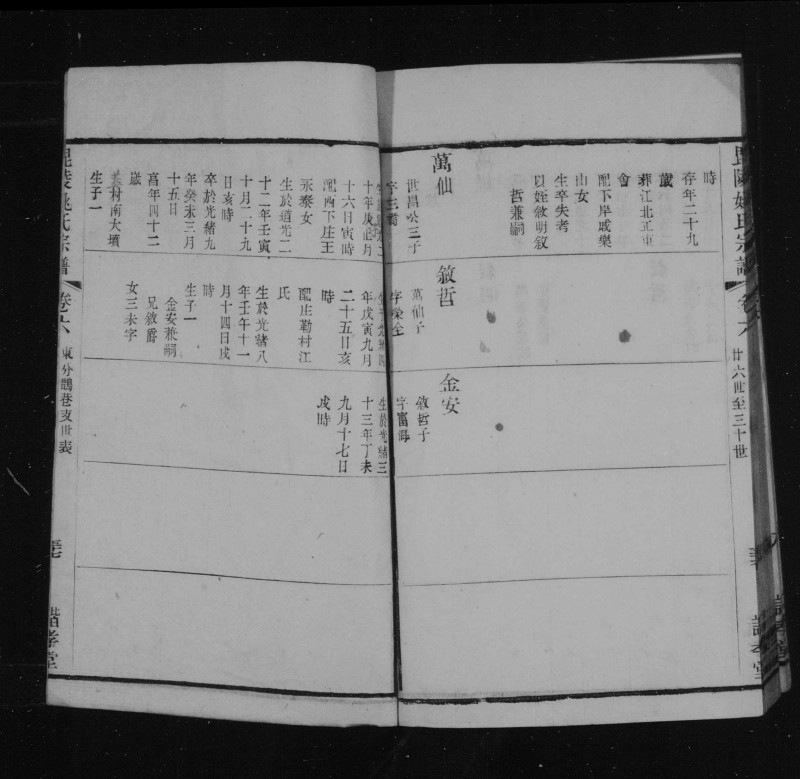 毘陵姚氏宗譜
卷六
廿六世至三十世
時
存年二十九
歲
葬江北正東
會
配下岸戚樂
山女
生卒失考
以姪敘明敘
哲兼嗣
萬仙
世昌公三子
十年庚辰正月
十六日寅時
配西下庄王
永泰女
生於道光二
十二年壬寅
十月二十九
日亥時
卒於光緒九
年癸未三月
十五日
高年四十二
歲
村南大墳
生子一
敘哲
萬仙子
字榮全
年戊寅九月
二十五日亥
時
配庄勒村江
氏
生於光緒八
年壬午十一
月十四日戌
時
生子一
金安兼嗣
兄敘爵
女三未字
金安
敘哲子
字富海
生於光緒三
十三年丁未
九月十七日
戌時
毘陵姚氏宗譜
卷六
東分鵲巷支世表
諧孝堂